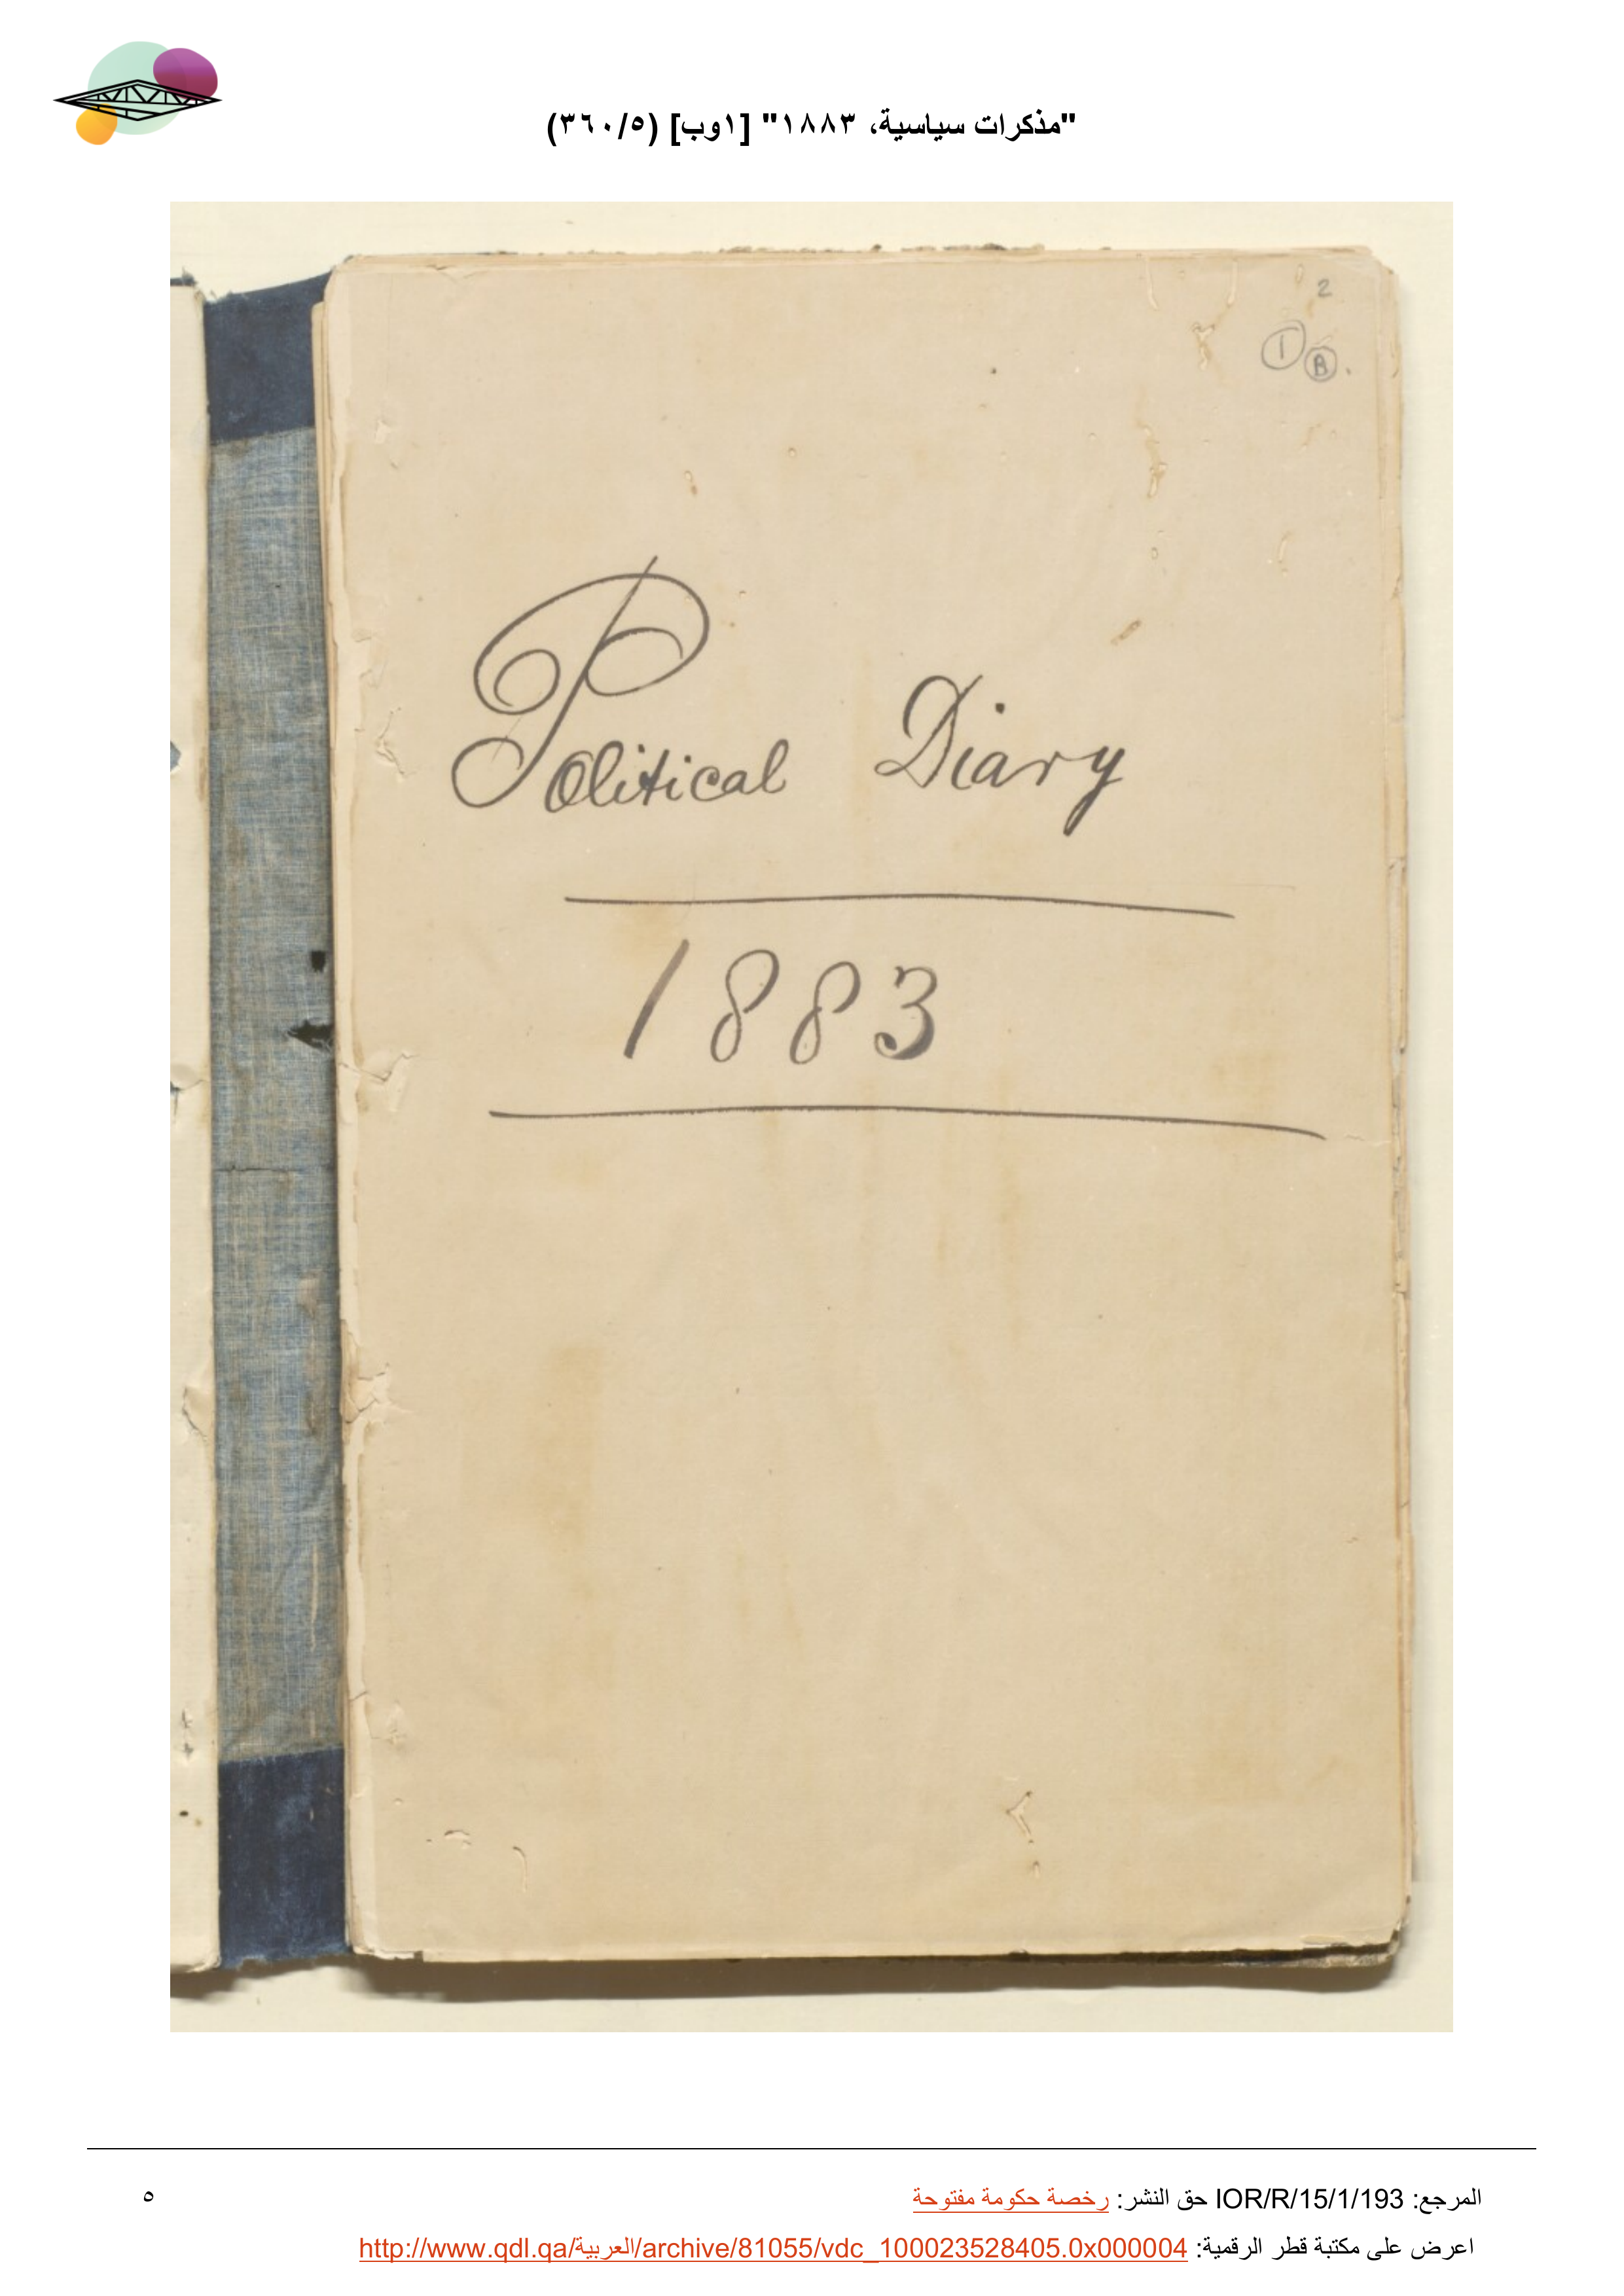 "مذكرات سياسية، ١٨٨٣" [١وب] (٣٦٠/٥)
2
1 B.
Political Diary
1883
المرجع: IOR/R/15/1/193 حق النشر: رخصة حكومة مفتوحة
٥
اعرض على مكتبة قطر الرقمية: http://www.qdl.qa/العربية/archive/81055/vdc_100023528405.0x000004